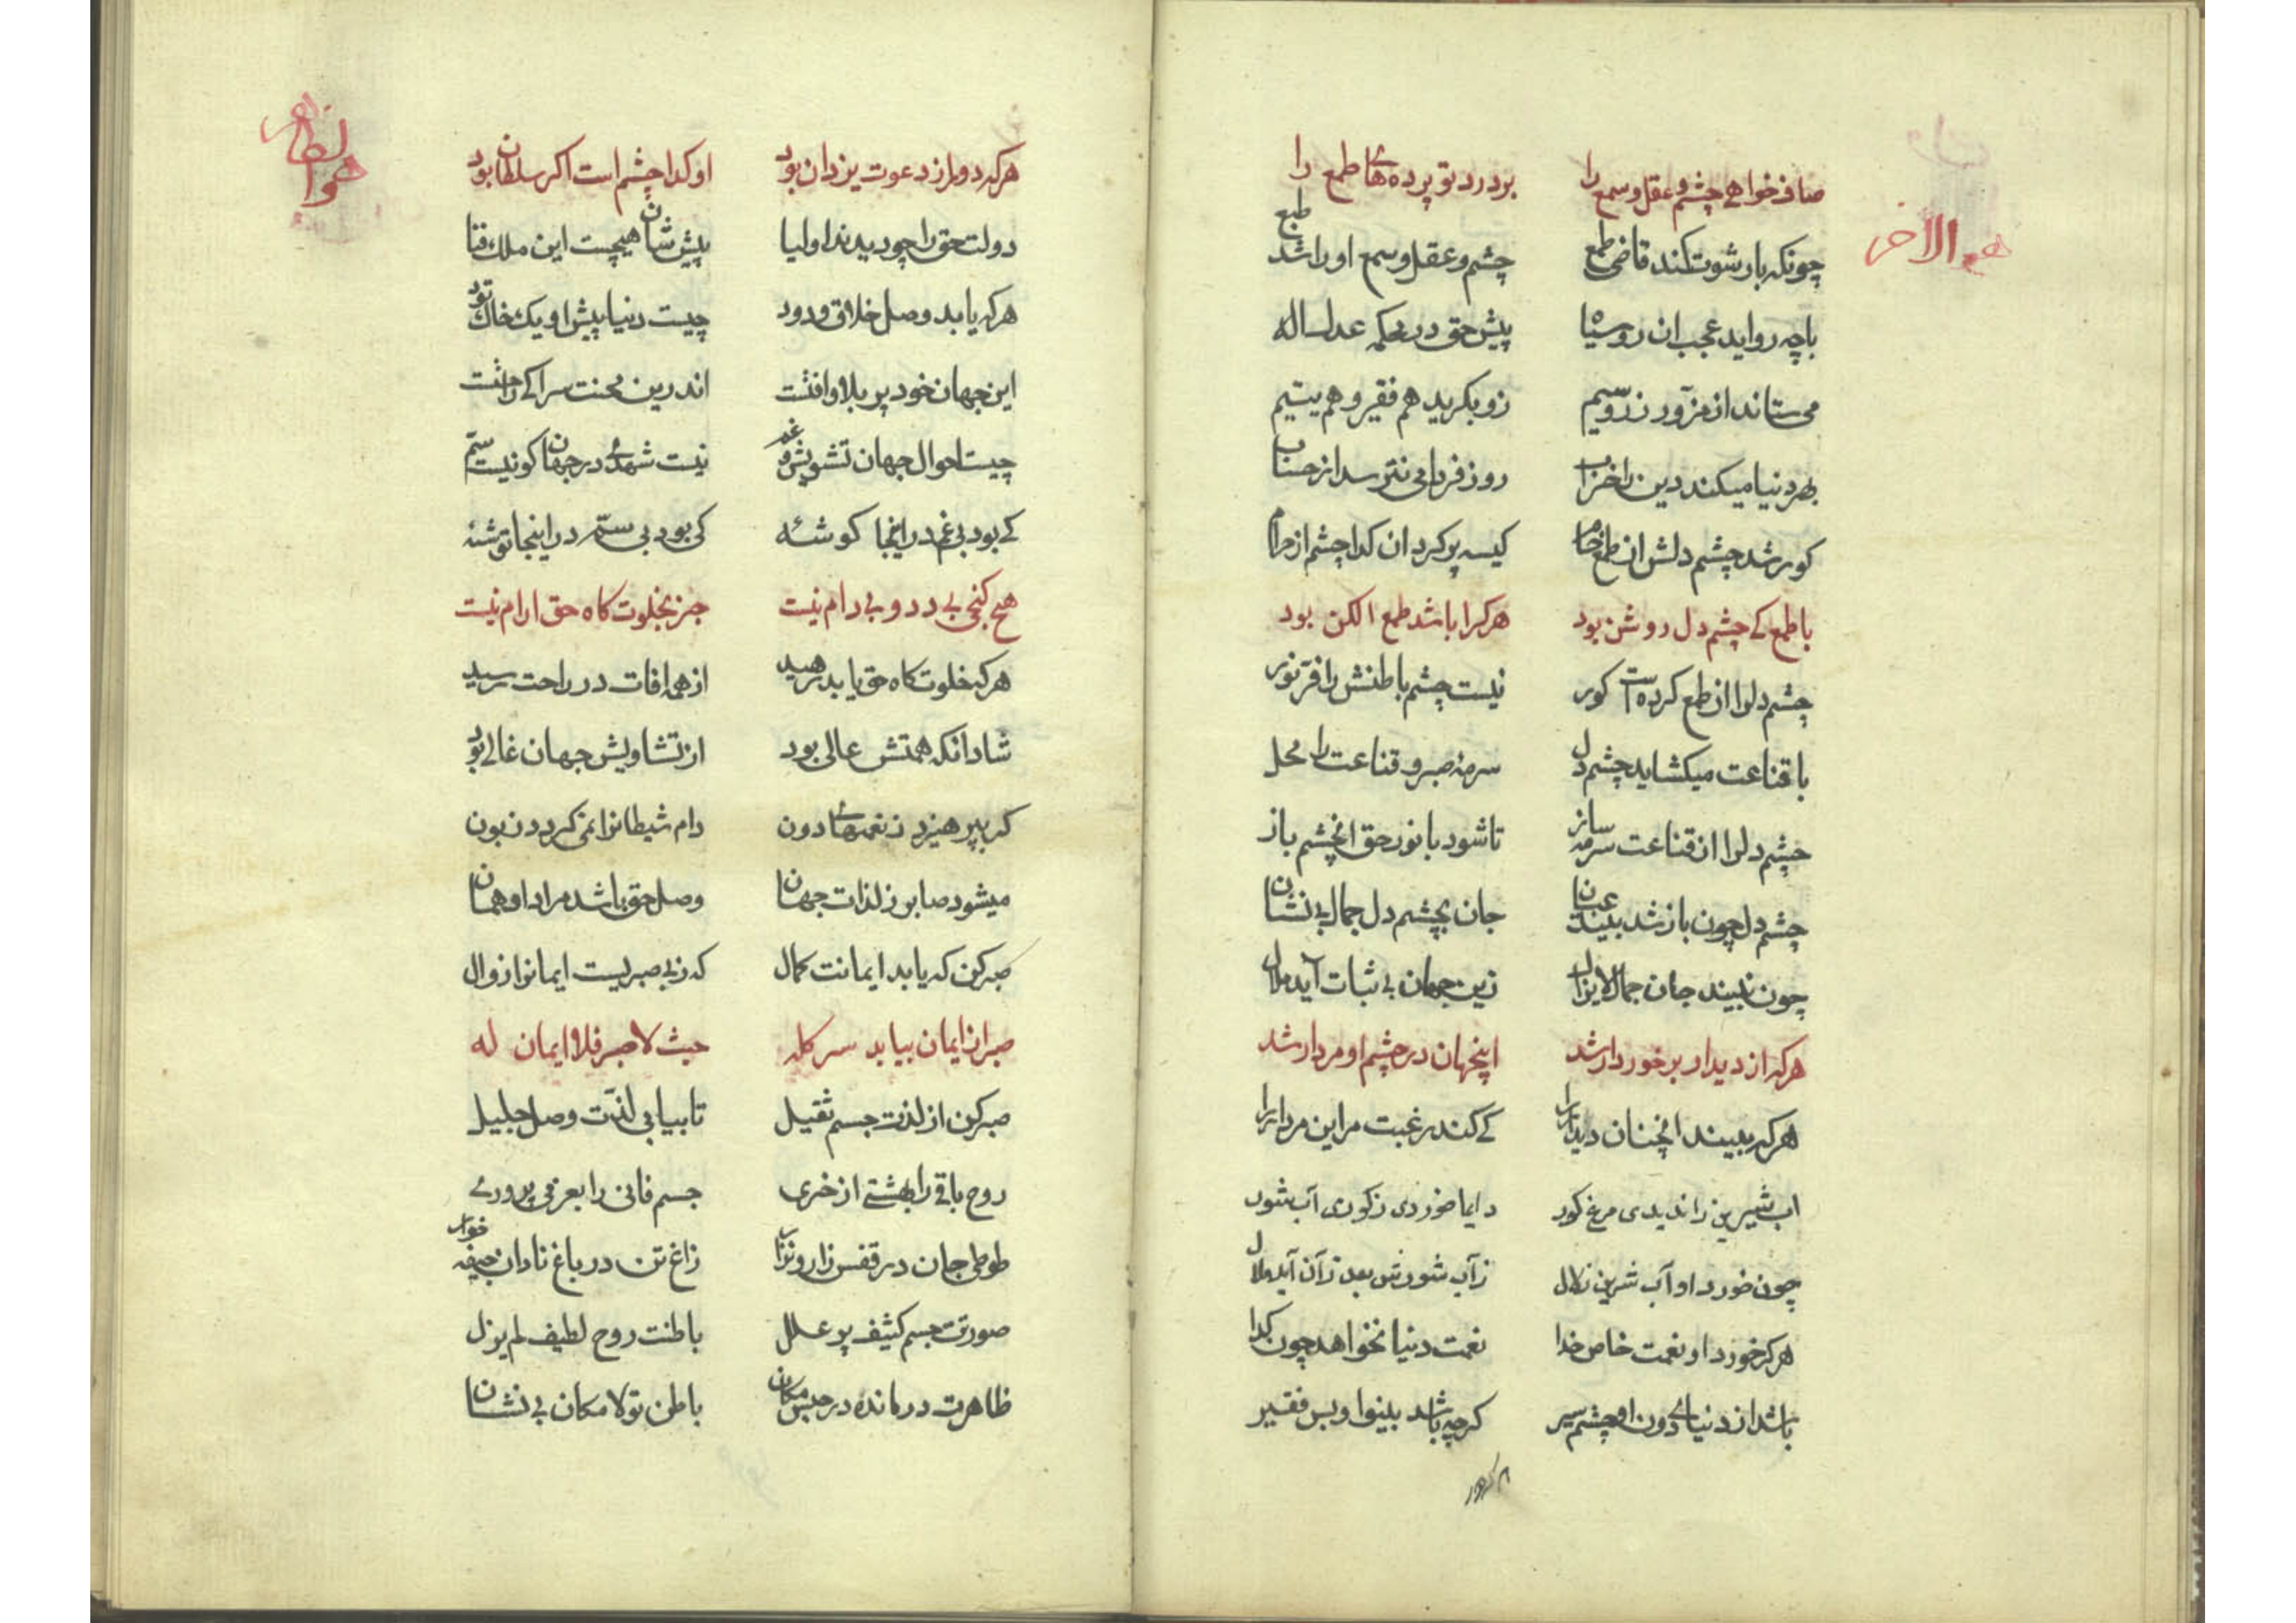 هو الاخر
صاف خواهی چشم و عقل و سمع را بردرد تو پرده‌های طمع را
چونکه با رشوت کند قاضی طمع چشم و عقل و سمع او را شد طبع
باچه رو اید عجب ان روسیاه پیش حق در محکمه عدل اله
می‌ستاند از مزور زر و سیم زو بکرید هم فقیر و هم یتیم
بهر دنیا میکند دین را خراب روز فردا می نترسد از حساب
کور شد چشم دلش ان طمع خام کیسه پر کرد ان کدا چشم از حرام
با طمع کے چشم دل روشن بود هرکرا باشد طمع الکن بود
چشم دلرا ان طمع کرده است کور نیست چشم باطنش را فر نور
با قناعت میکشاید چشم دل سرمۀ صبر و قناعت را محل
چشم دلرا از قناعت سرمه ساز تا شود با نور حق انچشم باز
چشم دل چون باز شد بیند عیان جان بچشم دل جمال بی نشان
چون ببیند جان جمال لایزال زین جهان بی ثبات آید ملال
هرکه از دیدار برخوردار شد اینجهان در چشم او مردار شد
هرکه ببیند انچنان دیدار را کے کند رغبت مر این مردار را
اب شیرین را ندیدی مرغ کور دایما خوردی ز کوری آب شور
چون خورد او آب شرین زلال ز آب شورش بعد از آن آید ملال
هرکه خورد او نعمت خاص خدا نعمت دنیا نخواهد چون کدا
باشد از دنیاے دون او چشم سیر کرچه باشد بینوا و بس فقیر
هو الظاهر
هرکه دور از دعوت یزدان بود او کدا چشم است اکر سلطان بود
دولت حق را چو دیدند اولیا پیش شان هیچست این ملک فنا
هرکه یابد وصل خلاق ودود چیست دنیا پیش او یک خاک تود
این جهان خود پر بلا و افتست اندرین محنت سرا کے راحتست
چیست احوال جهان تشویش و غم نیست شهدے در جهان کو نیست سم
کے بود بی غم در اینجا کوشۀ کی بود بی ستم در اینجا توشۀ
هیچ کنجی بے دد و بی دام نیست جز بخلوت کاه حق ارام نیست
هرکه خلوت کاه حق یابد رهید از همه افات در راحت رسید
شاد انکه همتش عالی بود از تشاویش جهان خالی بود
که بپرهیزد ز نعمتهاے دون دام شیطانرا نمی کردد زبون
میشود صابر ز لذات جهان وصل حق باشد مراد او همان
صبر کن که یابد ایمانت کمال که ز بی صبریست ایمانرا زوال
صبر از ایمان بیابد سر کله حیث لا صبر فلا ایمان له
صبر کن از لذت جسم ثقیل تا بیابی لذت وصل جلیل
روح باقی را بهشتے از خری جسم فانی را پرورے
طوطی جان در قفس زار و نزار زاغ تن در باغ نادان جیفه خوار
صورتت جسم کثیف پر علل باطنت روح لطیف لم یزل
ظاهرت درمانده در حبس مکان باطن تو لا مکان بی نشان